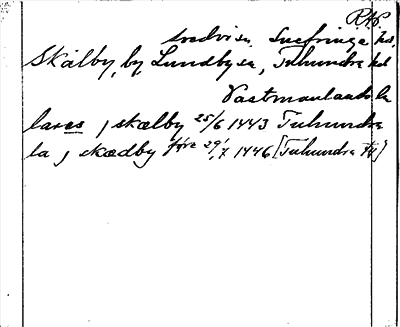 RAP
Snefringe hd
Skälby, by Lundby sn, Tuhundra hd
Västmanlands la
lares j skælby 25/6 1443 Tuhundra
la j skædby före 29/7 1446 [Tuhundra